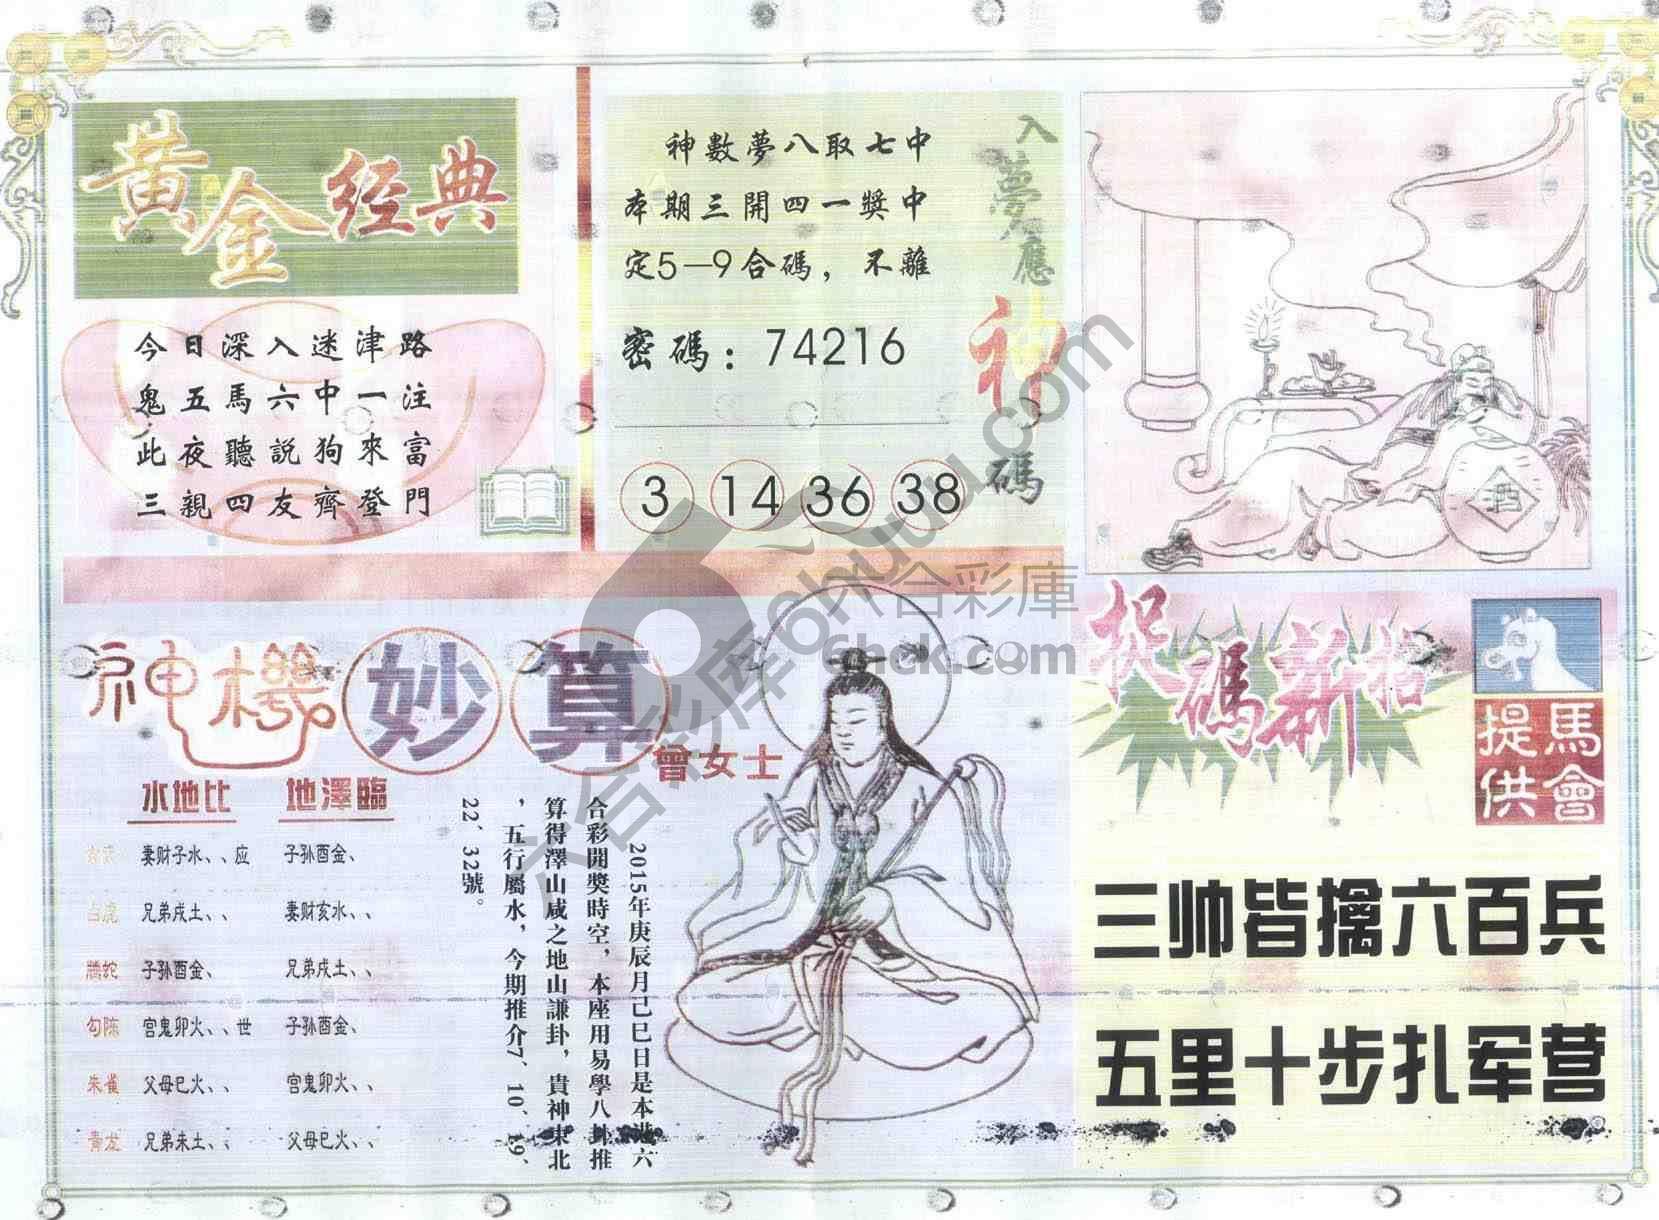 黃金经典
今日深入迷津路
鬼五馬六中一注
此夜聽説狗來富
三親四友齊登門
神數夢八取七中
本期三開四一獎中
定5—9合碼，不離
密碼：74216
3 14 36 38
入夢應神碼
神機妙算
曾女士
水地比 地澤臨
妻财子水、、应 子孙酉金、
白虎 兄弟戌土、、 妻财亥水、、
螣蛇 子孙酉金、 兄弟戌土、、
勾陈 宫鬼卯火、、世 子孙酉金、
朱雀 父母巳火、、 宫鬼卯火、、
青龙 兄弟未土、、 父母巳火、、
2015年庚辰月己巳日是本港六
合彩開獎時空，本座用易學八卦推
算得澤山咸之地山謙卦，貴神東北
，五行屬水，今期推介7、10、19、
22、32號。
捉碼新招
馬會提供
三帅皆擒六百兵
五里十步扎军营
六合彩庫
6hck.com
六合彩库6huuu.com